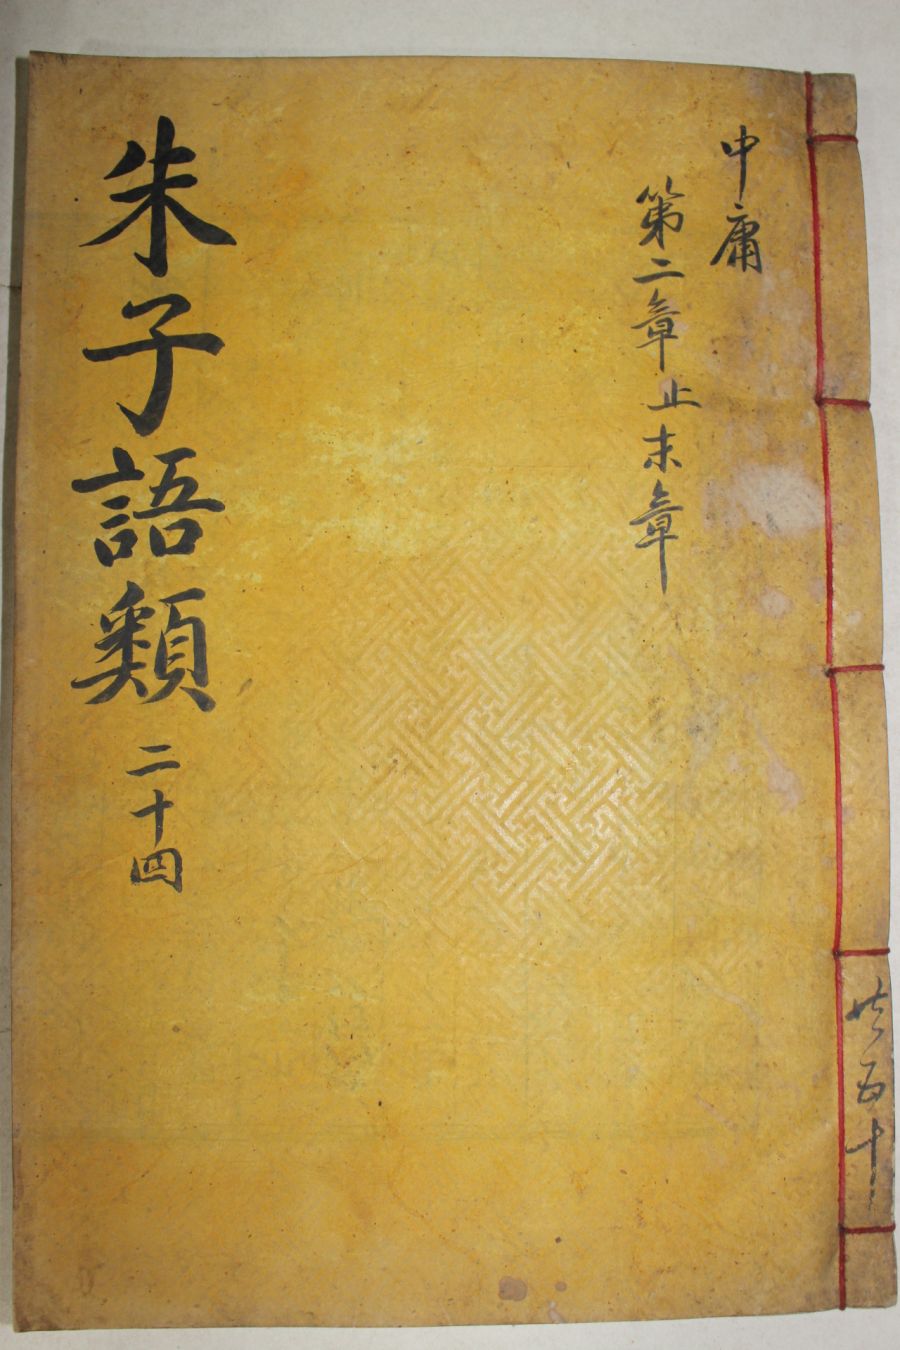 中庸
第二章止末章
朱子語類 二十四
共五十